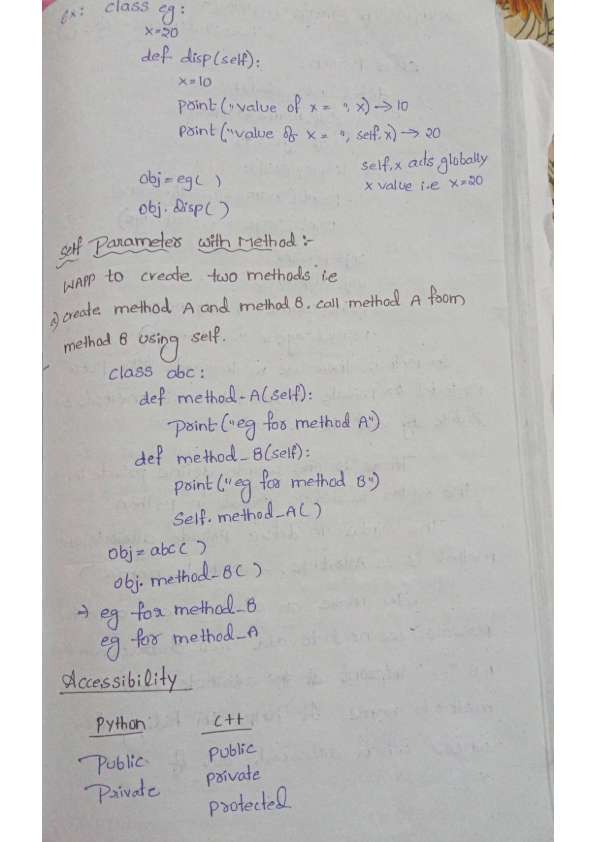 ex: class eg:
x=20
def disp(self):
x=10
print("value of x = ", x) → 10
print("value of x = ", self.x) → 20
self.x acts globally
obj=eg( )
x value i.e x=20
obj. Disp( )
Self Parameter with Method :-
WAPP to create two methods i.e
a) create method A and method B. call method A from
method B using self.
class abc:
def method-A(self):
Print("eg for method A")
def method_B(self):
print("eg for method B")
Self. method_A( )
obj=abc( )
obj. method-B( )
→ eg for method_B
eg for method_A
Accessibility
Python C++
Public public
Private private
protected